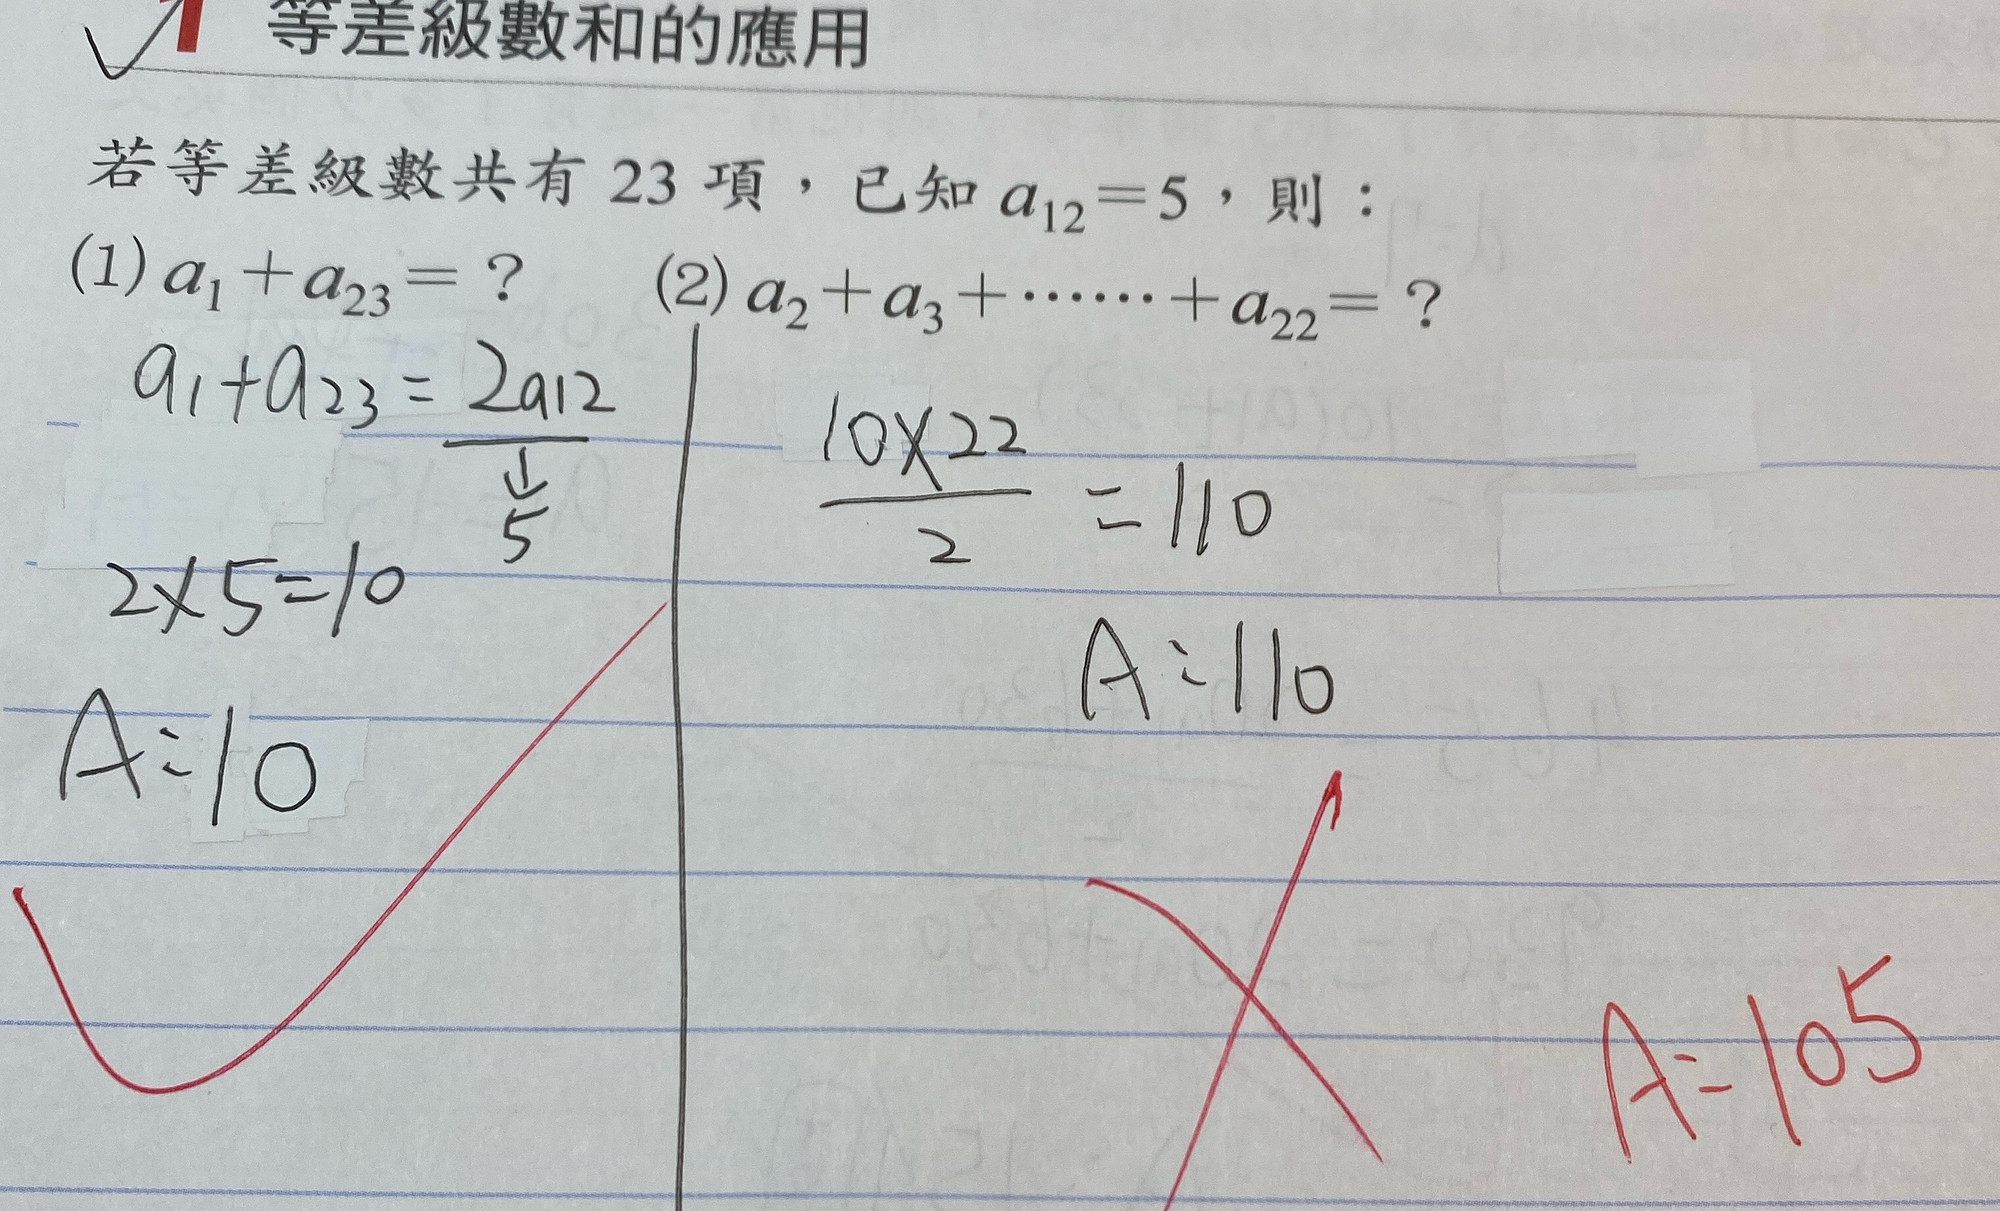 1 等差級數和的應用
若等差級數共有 23 項，已知 a₁₂=5，則：
(1) a₁+a₂₃=？ (2) a₂+a₃+……+a₂₂=？
a₁+a₂₃=2a₁₂
↓
5
2×5=10
A:10
10×22
2
=110
A:110
A=105